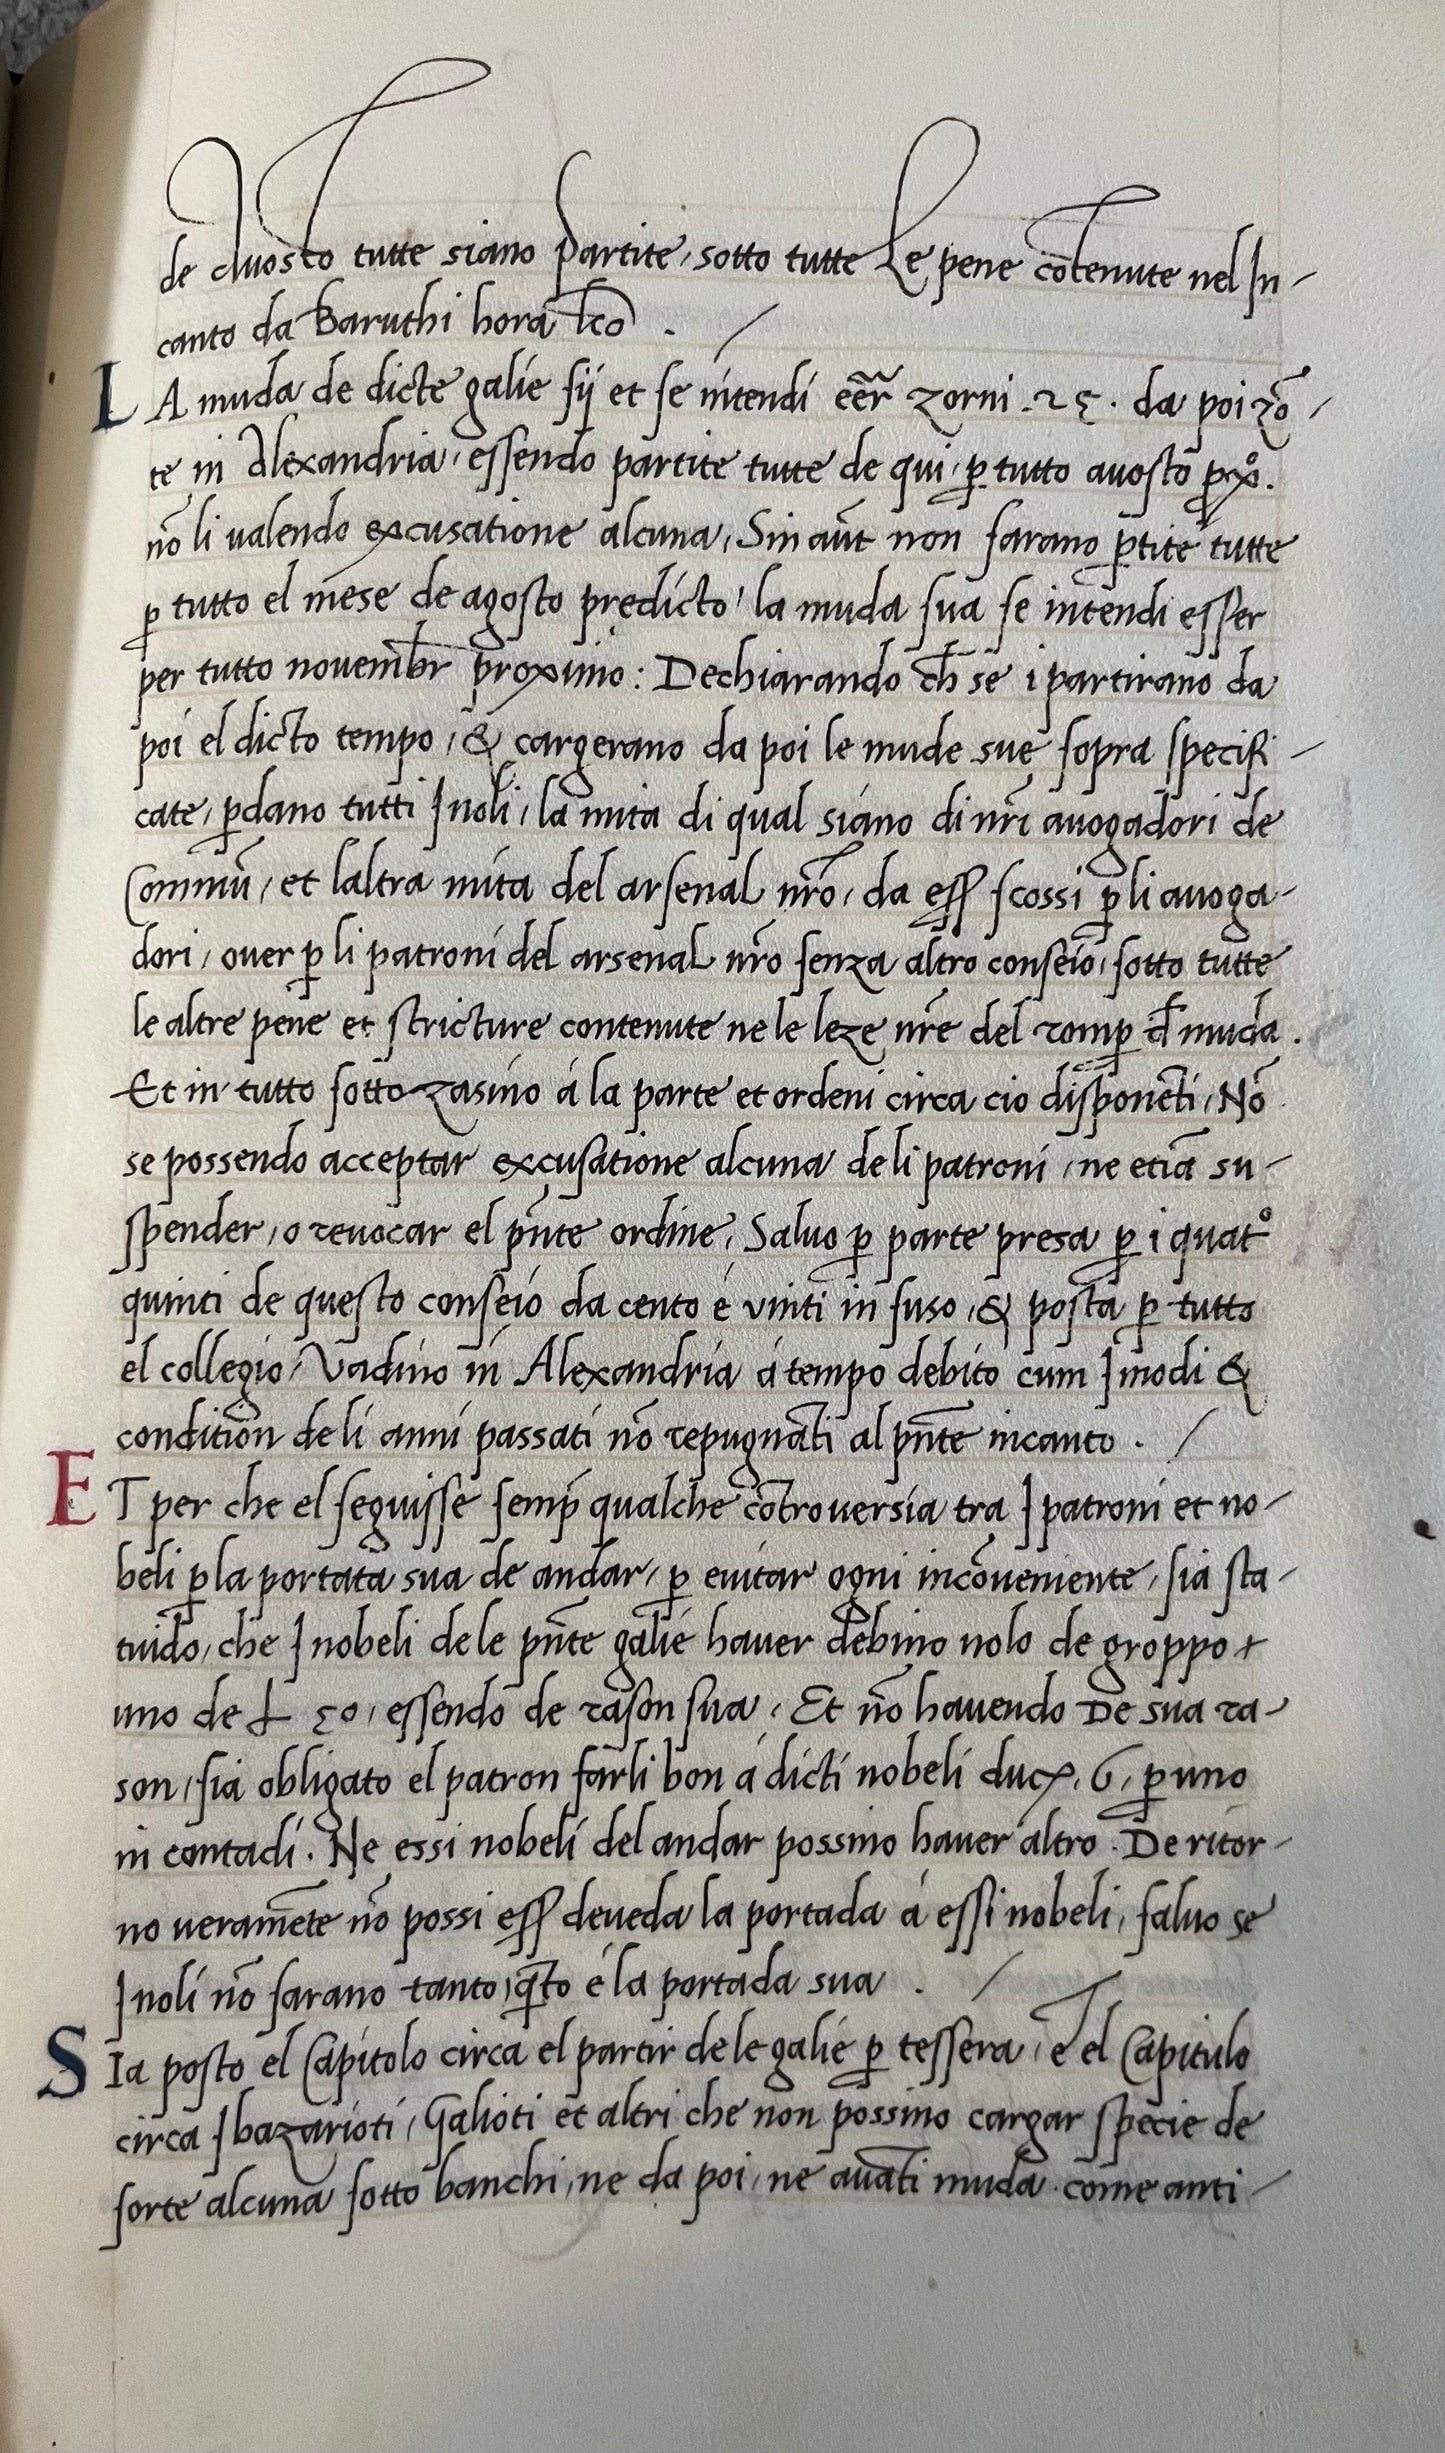 de Auosto tutte siano partite, sotto tutte Le pene cōtenute nel In-
canto da Baruthi hora lc̄o . /
LA muda de dicte galie sij et se intendi eēr zorni .25. da poi zō-
te in Alexandria, essendo partite tutte de qui, ꝑ tutto auosto ꝓxº.
nō li ualendo excusatione alcuna, Sin aūt non sarano ꝑtite tutte
ꝑ tutto el mese de agosto predicto, la muda sua se intendi esser
per tutto novemb̄r proximo: Dechiarando ch̄ se i partirano da
poi el dicto tempo, & cargerano da poi le mude sue sopra specifi-
cate, ꝑdano tutti I noli, la mita di qual siano di nr̄i auogadori de
Commū, et laltra mita del arsenal nr̄o, da eēss scossi ꝑ li auoga-
dori, ouer ꝑ li patroni del arsenal nr̄o senza altro conseio, sotto tutte
le altre pene et stricture contenute ne le leze nr̄e del romꝑ d̄ muda.
Et in tutto sottozasino á la parte et ordeni circa cio disponēti, Nō
se possendo acceptar excusatione alcuna de li patroni, ne etiā su-
spender, o reuocar el pn̄te ordine, Saluo ꝑ parte presa ꝑ i quatº
quinti de questo conseio da cento é vinti in suso, & posta ꝑ tutto
el collegio, Vadino in Alexandria á tempo debito cum I modi &
condition̄ de li anni passati nō repugnāti al pn̄te incanto . /
ET per che el seguisse semp̄ qualche cōtroversia tra I patroni et no-
beli ꝑ la portata sua de andar, ꝑ euitar ogni incōueniente, sia sta-
tuido, che I nobeli de le pn̄te galie hauer debino nolo de groppo +
uno de £ 50, essendo de rason sua, Et nō hauendo De sua ra-
son, sia obligato el patron farli bon á dicti nobeli ducx. 6, ꝑ uno
in contadi. Ne essi nobeli del andar possino hauer altro . De ritor-
no ueramēte nō possi eēss deueda la portada á essi nobeli, saluo se
I noli nō sarano tanto, q̄to é la portada sua . /
SIa posto el Capitolo circa el partir de le galie ꝑ tessera, e el Capitulo
circa I bazarioti, Galioti et altri che non possino cargar specie de
sorte alcuna sotto banchi, ne da poi, ne auāti muda. come anti-